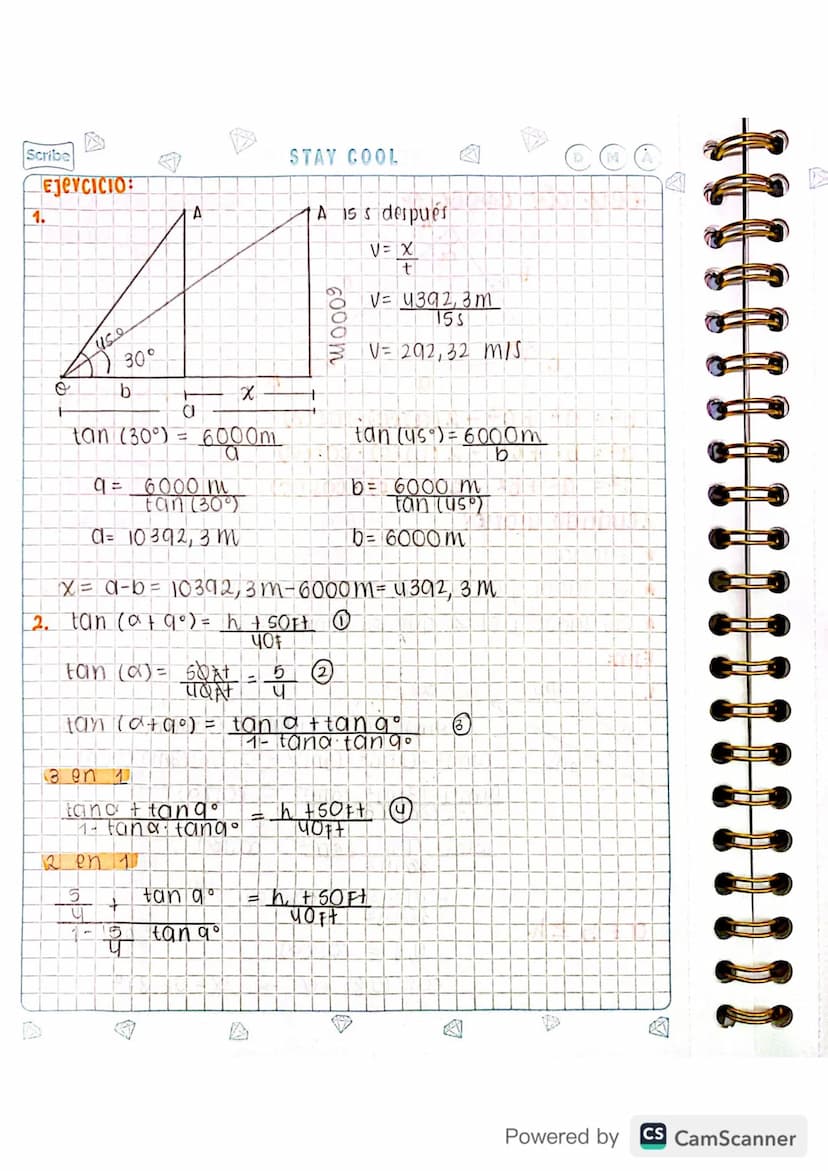 Scribe
STAY COOL
D M A
Ejercicio:
1.
A
A 15 s después
V= x/t
V= 4392,3m/15s
V= 292,32 m/s
6000m
45°
30°
θ
b
x
a
tan (30°) = 6000m/a
tan (45°) = 6000m/b
a = 6000 m/tan (30°)
b = 6000 m/tan (45°)
a= 10392,3 m
b= 6000m
x = a-b = 10392,3m-6000m= 4392,3m
2. tan (a+9°) = h + 50ft/40f ①
tan (a) = 50ft/40ft = 5/4 ②
tan (a+9°) = tan a + tan 9°/1- tana·tan9° ③
3 en 1
tana + tan9°/1- tana·tan9° = h +50ft/40ft ④
2 en 1
5/4 + tan 9°/1- 5/4 tan9° = h + 50ft/40ft
Powered by CS CamScanner